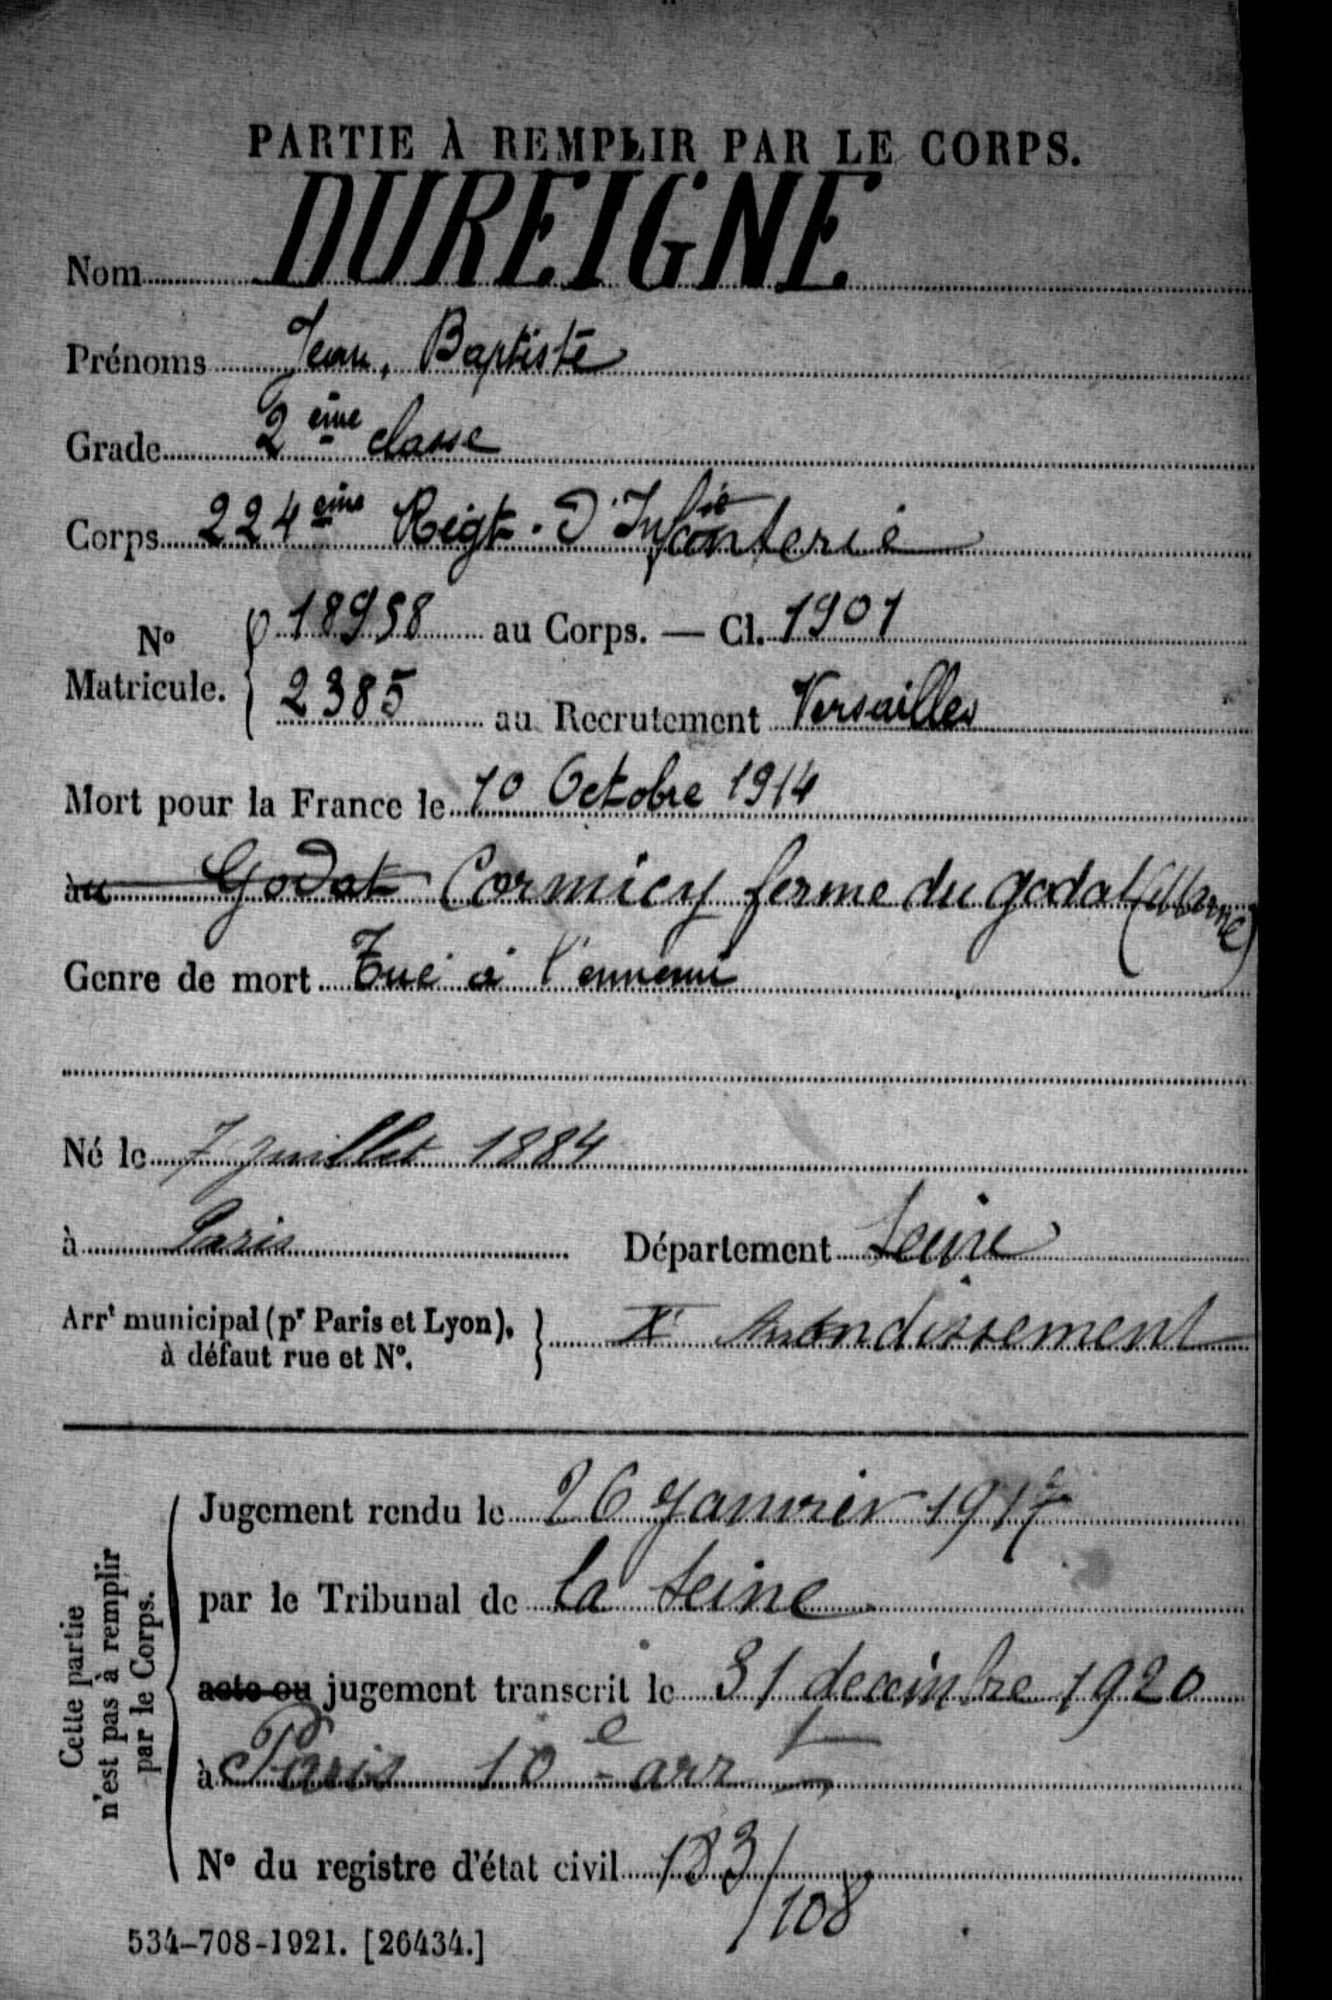 PARTIE À REMPLIR PAR LE CORPS.
Nom DUREIGNE
Prénoms Jean, Baptiste
Grade 2 ème classe
Corps 224 ème Régt. D'Infanterie
No Matricule. 18958 au Corps. — Cl. 1901
2385 au Recrutement Versailles
Mort pour la France le 10 Octobre 1914
àu Godat Cormicy ferme du godat (Marne)
Genre de mort Tué à l'ennemi
Né le 7 juillet 1884
à Paris Département Seine
Arrt municipal (pr Paris et Lyon), à défaut rue et No. Xe Arrondissement
Cette partie n'est pas à remplir par le Corps.
Jugement rendu le 26 Janvier 1917
par le Tribunal de la Seine
acte ou jugement transcrit le 31 decembre 1920
à Paris 10e arrt
No du registre d'état civil 183/108
534-708-1921. [26434.]